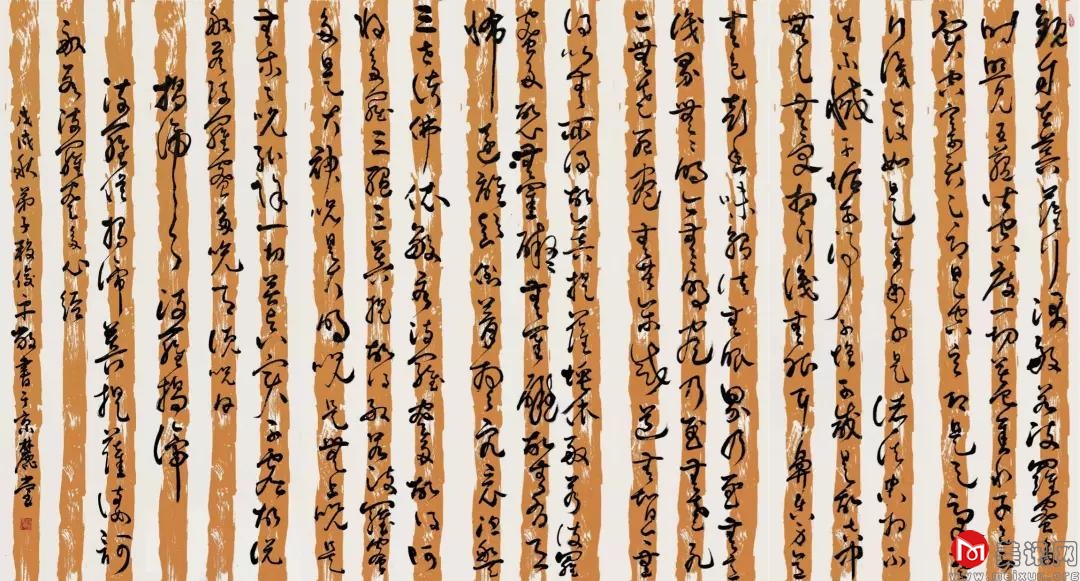 觀自在菩薩行深般若波羅蜜多
時照見五蘊皆空度一切苦厄舍利子色不
異空空不異色色即是空空即是色受想
行識亦復如是舍利子是諸法空相不
生不滅不垢不淨不增不減是故空中
無色無受想行識無眼耳鼻舌身意
無色聲香味觸法無眼界乃至無意
識界無無明亦無無明盡乃至無老死
亦無老死盡無苦集滅道無智亦無
得以無所得故菩提薩埵依般若波羅
蜜多故心無罣礙無罣礙故無有恐
怖遠離顛倒夢想究竟涅槃
三世諸佛依般若波羅蜜多故得阿
耨多羅三藐三菩提故知般若波羅蜜
多是大神咒是大明咒是無上咒是
無等等咒能除一切苦真實不虛故說
般若波羅蜜多咒即說咒曰
揭諦揭諦波羅揭諦
波羅僧揭諦菩提薩婆訶
般若波羅蜜多心經
戊戌秋弟子俊平敬書于京麓堂
美讯网
www.meixun.org